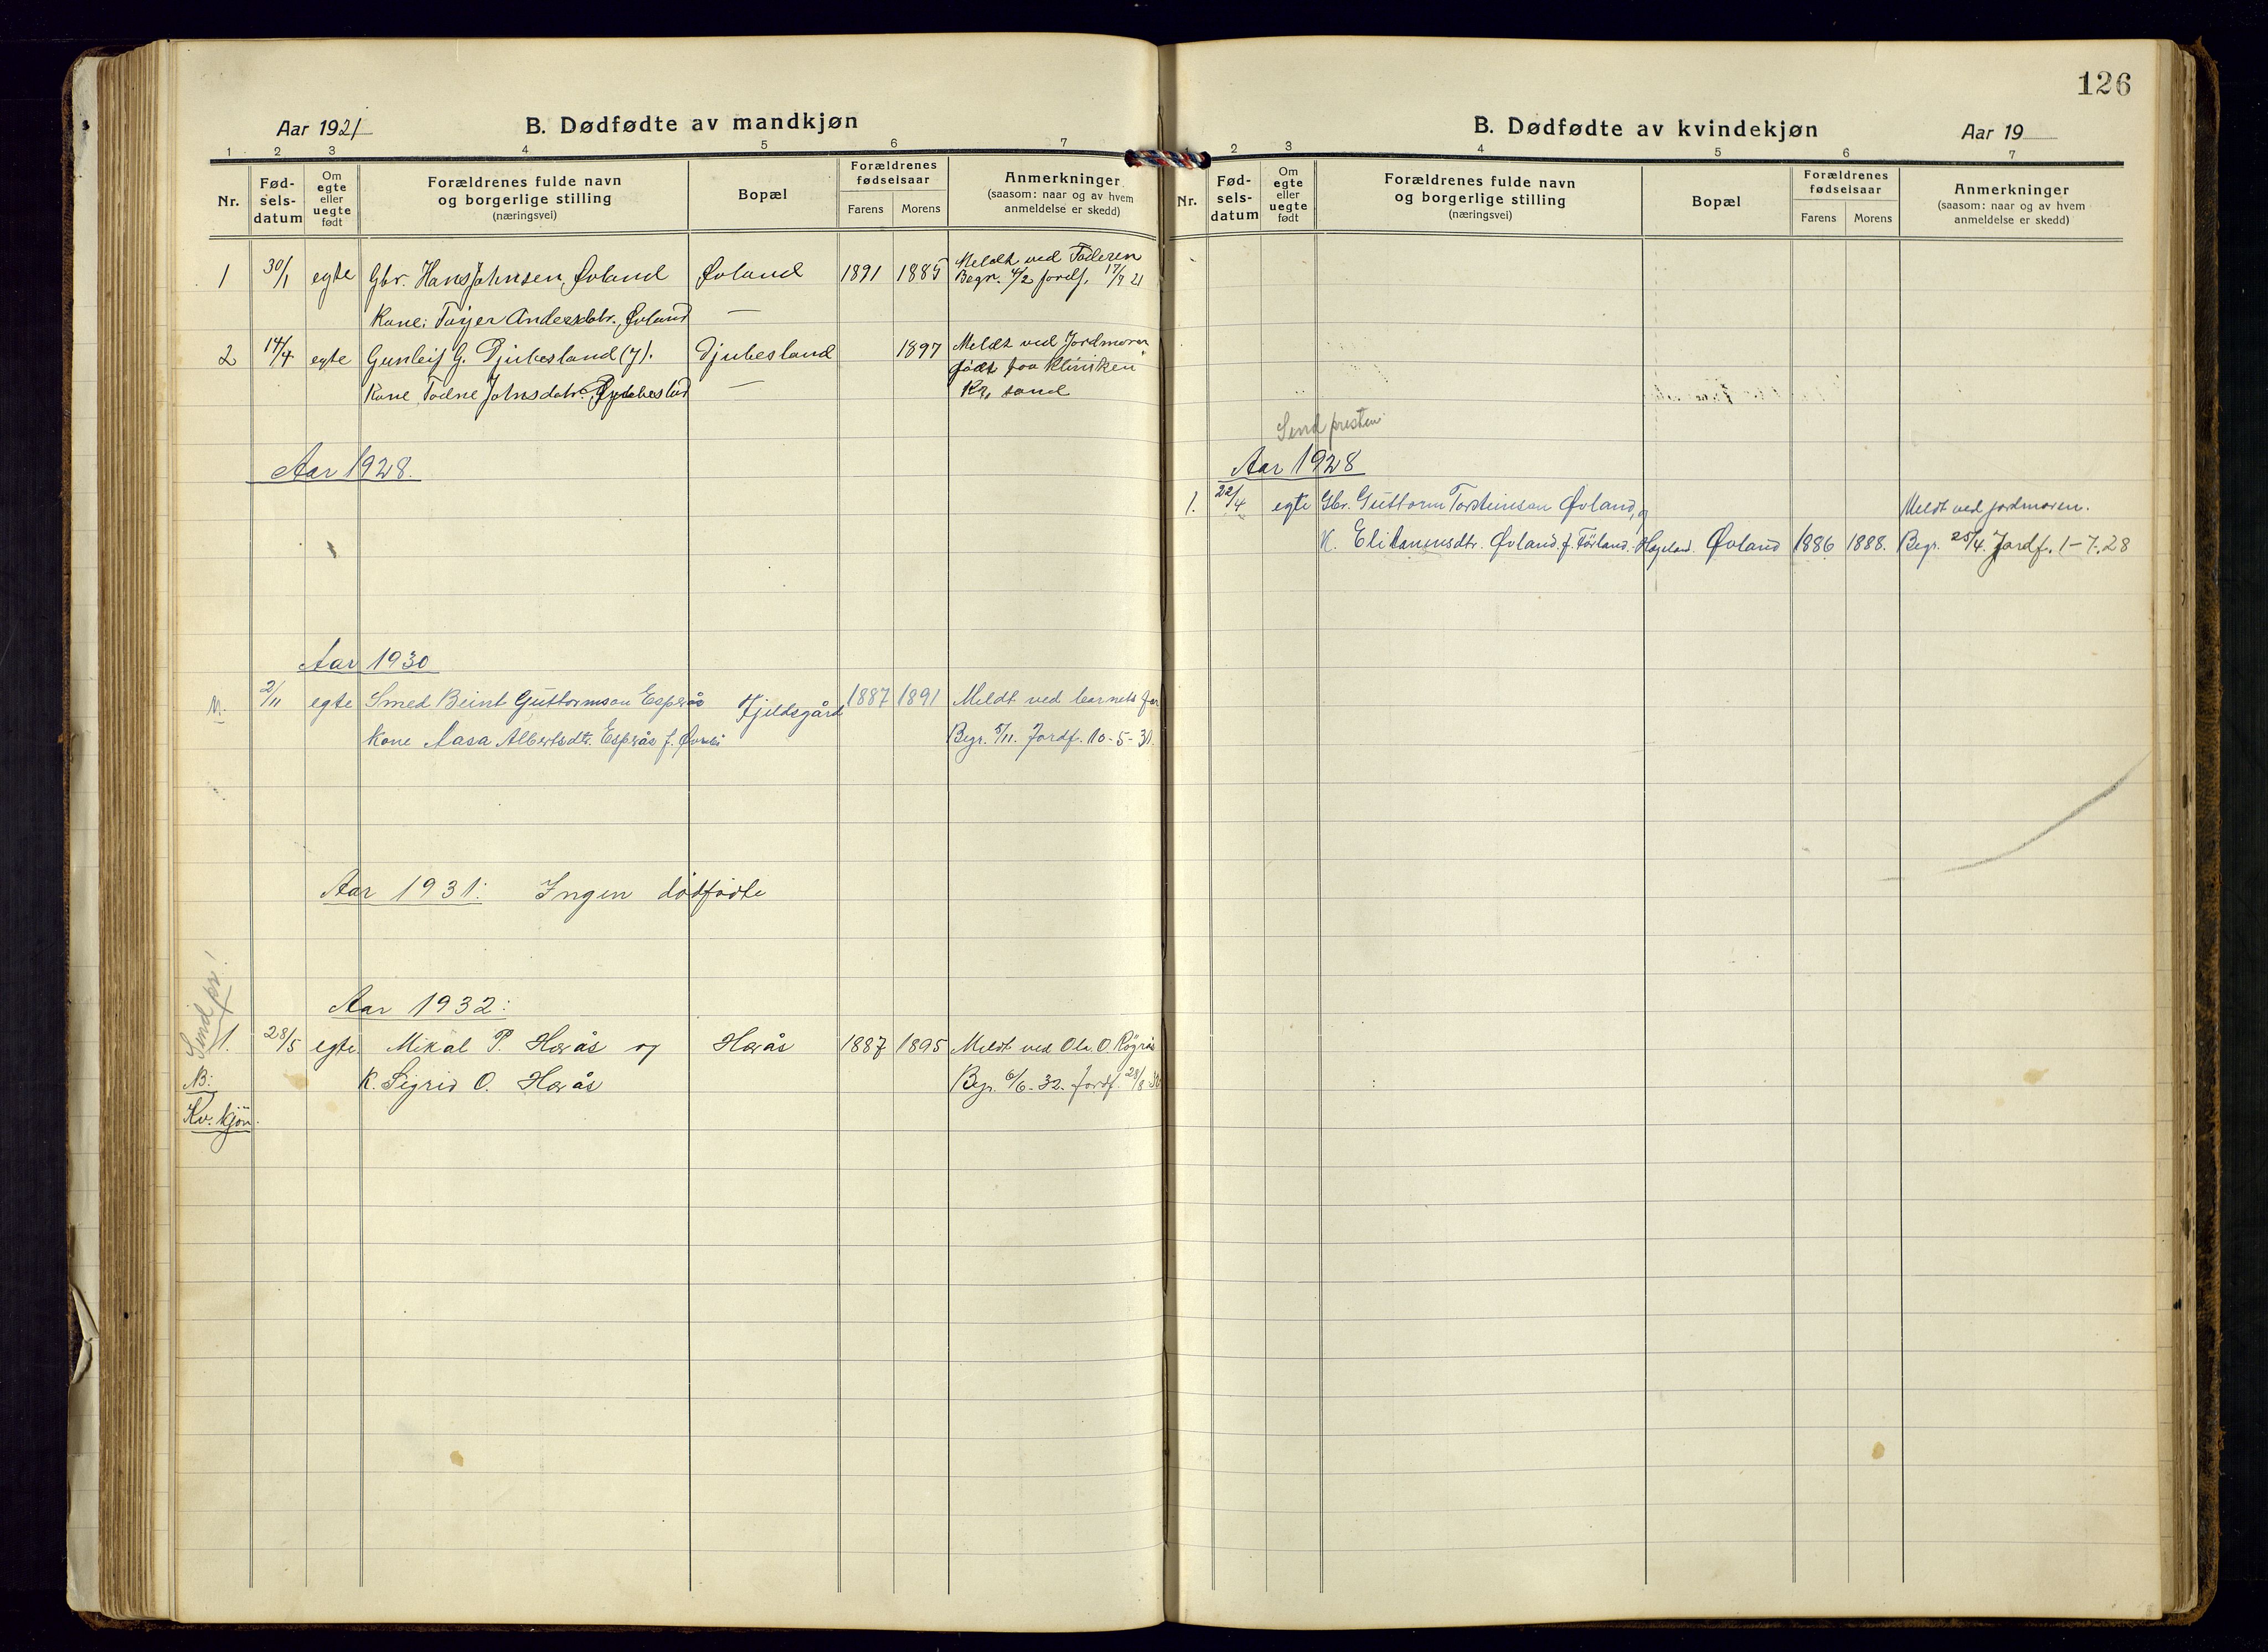 126
Aar 1921
B. Dødfødte av mandkjøn
1 2 3 4 5 6 7
Nr.
Fød-
sels-
datum
Om
egte
eller
uegte
født
Forældrenes fulde navn
og borgerlige stilling
(næringsvei)
Bopæl
Forældrenes
fødselsaar
Farens Morens
Anmerkninger
(saasom: naar og av hvem
anmeldelse er skedd)
1 30/1 egte Gbr. Hans Johnsen, Øvland Øvland 1891 1885 Meldt ved Faderen
Begr. 4/2 jordf. 17/7 21
Kone: Andersdatr. Øvland —
2 14/4 egte Gunleif G. Djubesland (7). Djubesland 1897 Meldt ved Jordmoren
født paa Kliniken
Kone Todne Johnsdatr. —
Kr. sand
Aar 1928.
Aar 1930
2/11 egte Smed Beint Guttormson Esperås Fjeldsgård 1887 1891 Meldt ved barnets far
Kone Aasa Albertsdtr. Esperås f.
Begr. 5/11. Jordf. 10-5-31.
Aar 1931: Ingen dødfødte
Aar 1932:
Send pr!
1. 28/5 egte Mikal P. Horås og Horås 1887 1895 Meldt ved Ola O.
NB:
K. Sigrid O. Horås
Begr. 6/6-32. Jordf. 28/8-32
Kv. kjön.
B. Dødfødte av kvindekjøn
Aar 19
1 2 3 4 5 6 7
Nr.
Fød-
sels-
datum
Om
egte
eller
uegte
født
Forældrenes fulde navn
og borgerlige stilling
(næringsvei)
Bopæl
Forældrenes
fødselsaar
Farens Morens
Anmerkninger
(saasom: naar og av hvem
anmeldelse er skedd)
Send presten
Aar 1928
1. 22/4 egte Gbr. Guttorm Torsteinson Øvland, og
Meldt ved jordmoren.
K. Øvland. f. Hægeland. Øvland 1886 1888. Begr. 25/4. Jordf. 1-7-28